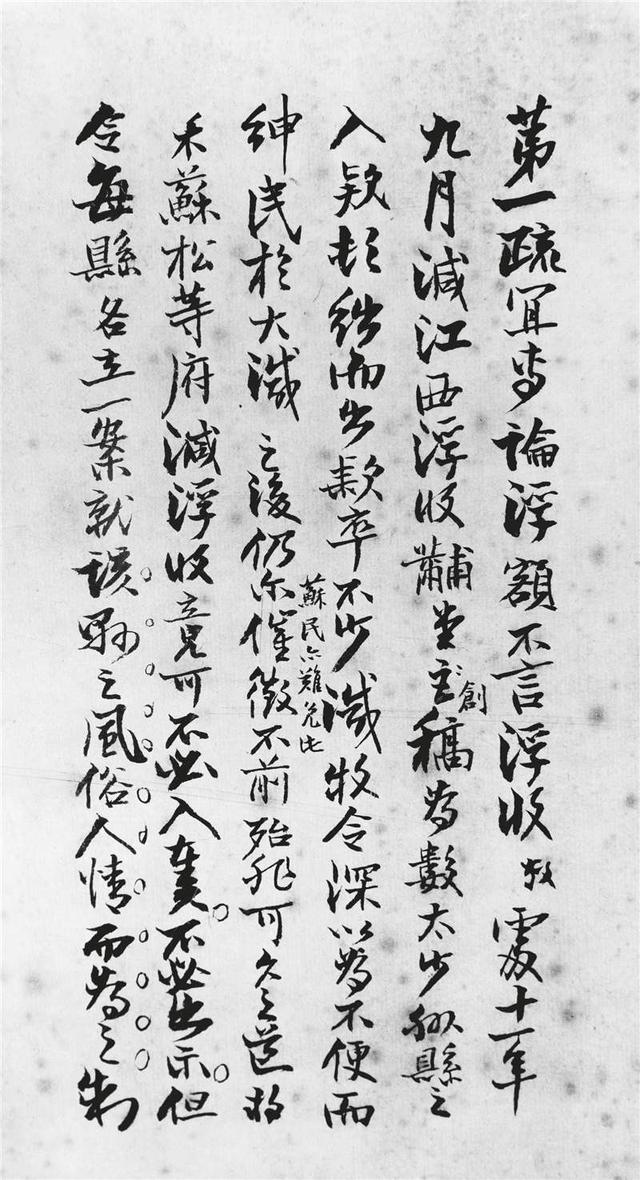 第一疏宜專論浮額不言浮收敝處十一年
九月減江西浮收黼堂主創稿為數太少州縣之
入款頓絀而出款卒不少減牧令深以為不便而
蘇民亦難免此
紳民於大減之後仍爾催徵不前殆非可久之道將
來蘇松等府減浮收竟可不必入奏不必出示但
令每縣各立一案就該縣之風俗人情而為之制